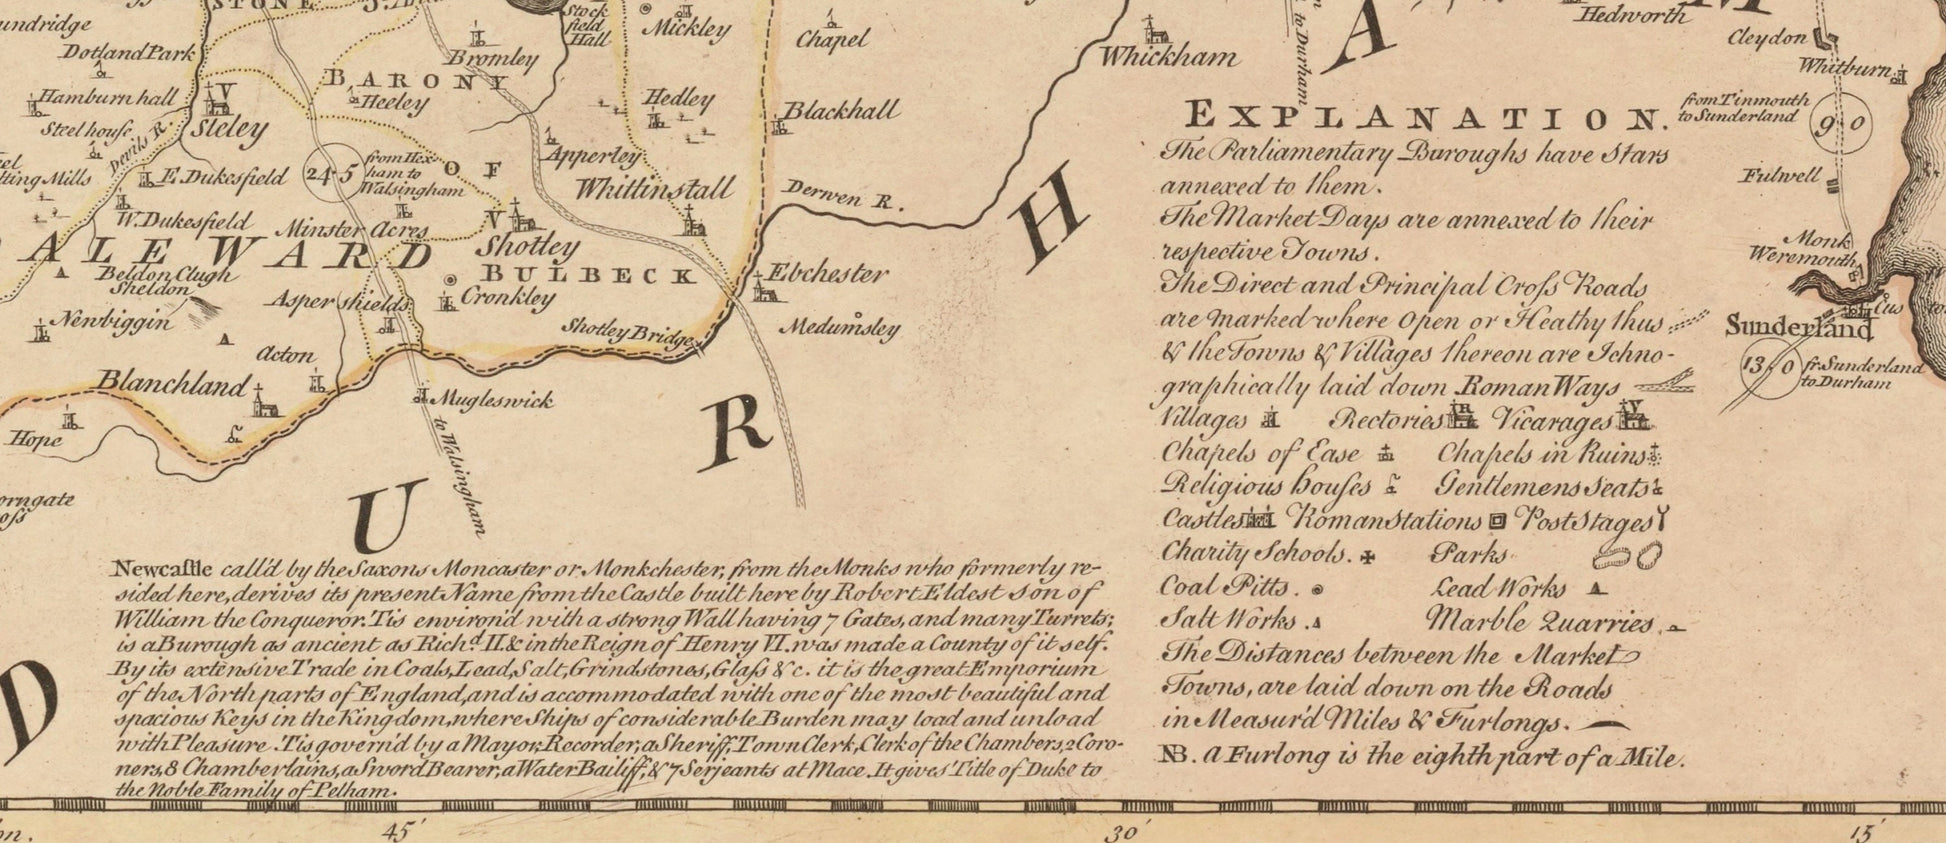 STONE
undridge
Dotland Park
Hamburn hall
Steel house
Devils R.
V
Sleley
ting Mills
E. Dukesfield
W. Dukesfield
Bromley
BARONY
Heeley
24.5
from Hex-
ham to
Walsingham
OF
Apperley
Stock
field
Hall
Mickley
Hedley
Chapel
Blackhall
Whittinstall
Derwen R.
Minster Acres
V
Shotley
ALE WARD
BULBECK
Beldon Clugh
Sheldon
Newbiggin
Aspershields
Cronkley
Ebchester
Medumsley
Shotley Bridge
Acton
Blanchland
Mugleswick
Hope
to Walsingham
orngate
oss
D
U
R
H
A
M
Whickham
to Durham
Hedworth
Cleydon
Whitburn
from Tinmouth
to Sunderland
9.0
Fulwell
Monk
Weremouth
Cus
to
Sunderland
13.0
fr. Sunderland
to Durham
EXPLANATION.
The Parliamentary Buroughs have Stars
annexed to them.
The Market Days are annexed to their
respective Towns.
The Direct and Principal Croſs Roads
are marked where Open or Heathy thus
& the Towns & Villages thereon are Ichno-
graphically laid down. Roman Ways
Villages Rectories R Vicarages V
Chapels of Ease Chapels in Ruins
Religious houſes Gentlemens Seats
Castles Roman Stations Post Stages
Charity Schools. Parks
Coal Pitts. Lead Works
Salt Works. Marble Quarries.
The Distances between the Market
Towns, are laid down on the Roads
in Measur'd Miles & Furlongs.
NB. a Furlong is the eighth part of a Mile.
Newcaſtle call'd by the Saxons Moncaster or Monkchester, from the Monks who formerly re-
sided here, derives its present Name from the Castle built here by Robert Eldest son of
William the Conqueror. Tis environ'd with a strong Wall having 7 Gates, and many Turrets;
is a Burough as ancient as Rich.d II. & in the Reign of Henry VI. was made a County of it self.
By its extensive Trade in Coals, Lead, Salt, Grindstones, Glaſs &c. it is the great Emporium
of the North parts of England, and is accommodated with one of the most beautiful and
spacious Keys in the Kingdom, where Ships of considerable Burden may load and unload
with Pleasure. Tis govern'd by a Mayor, Recorder, a Sheriff, Town Clerk, Clerk of the Chambers, 2 Coro-
ners, 8 Chamberlains, a Sword Bearer, a Water Bailiff, & 7 Serjeants at Mace. It gives Title of Duke to
the Noble Family of Pelham.
45'
30'
15'